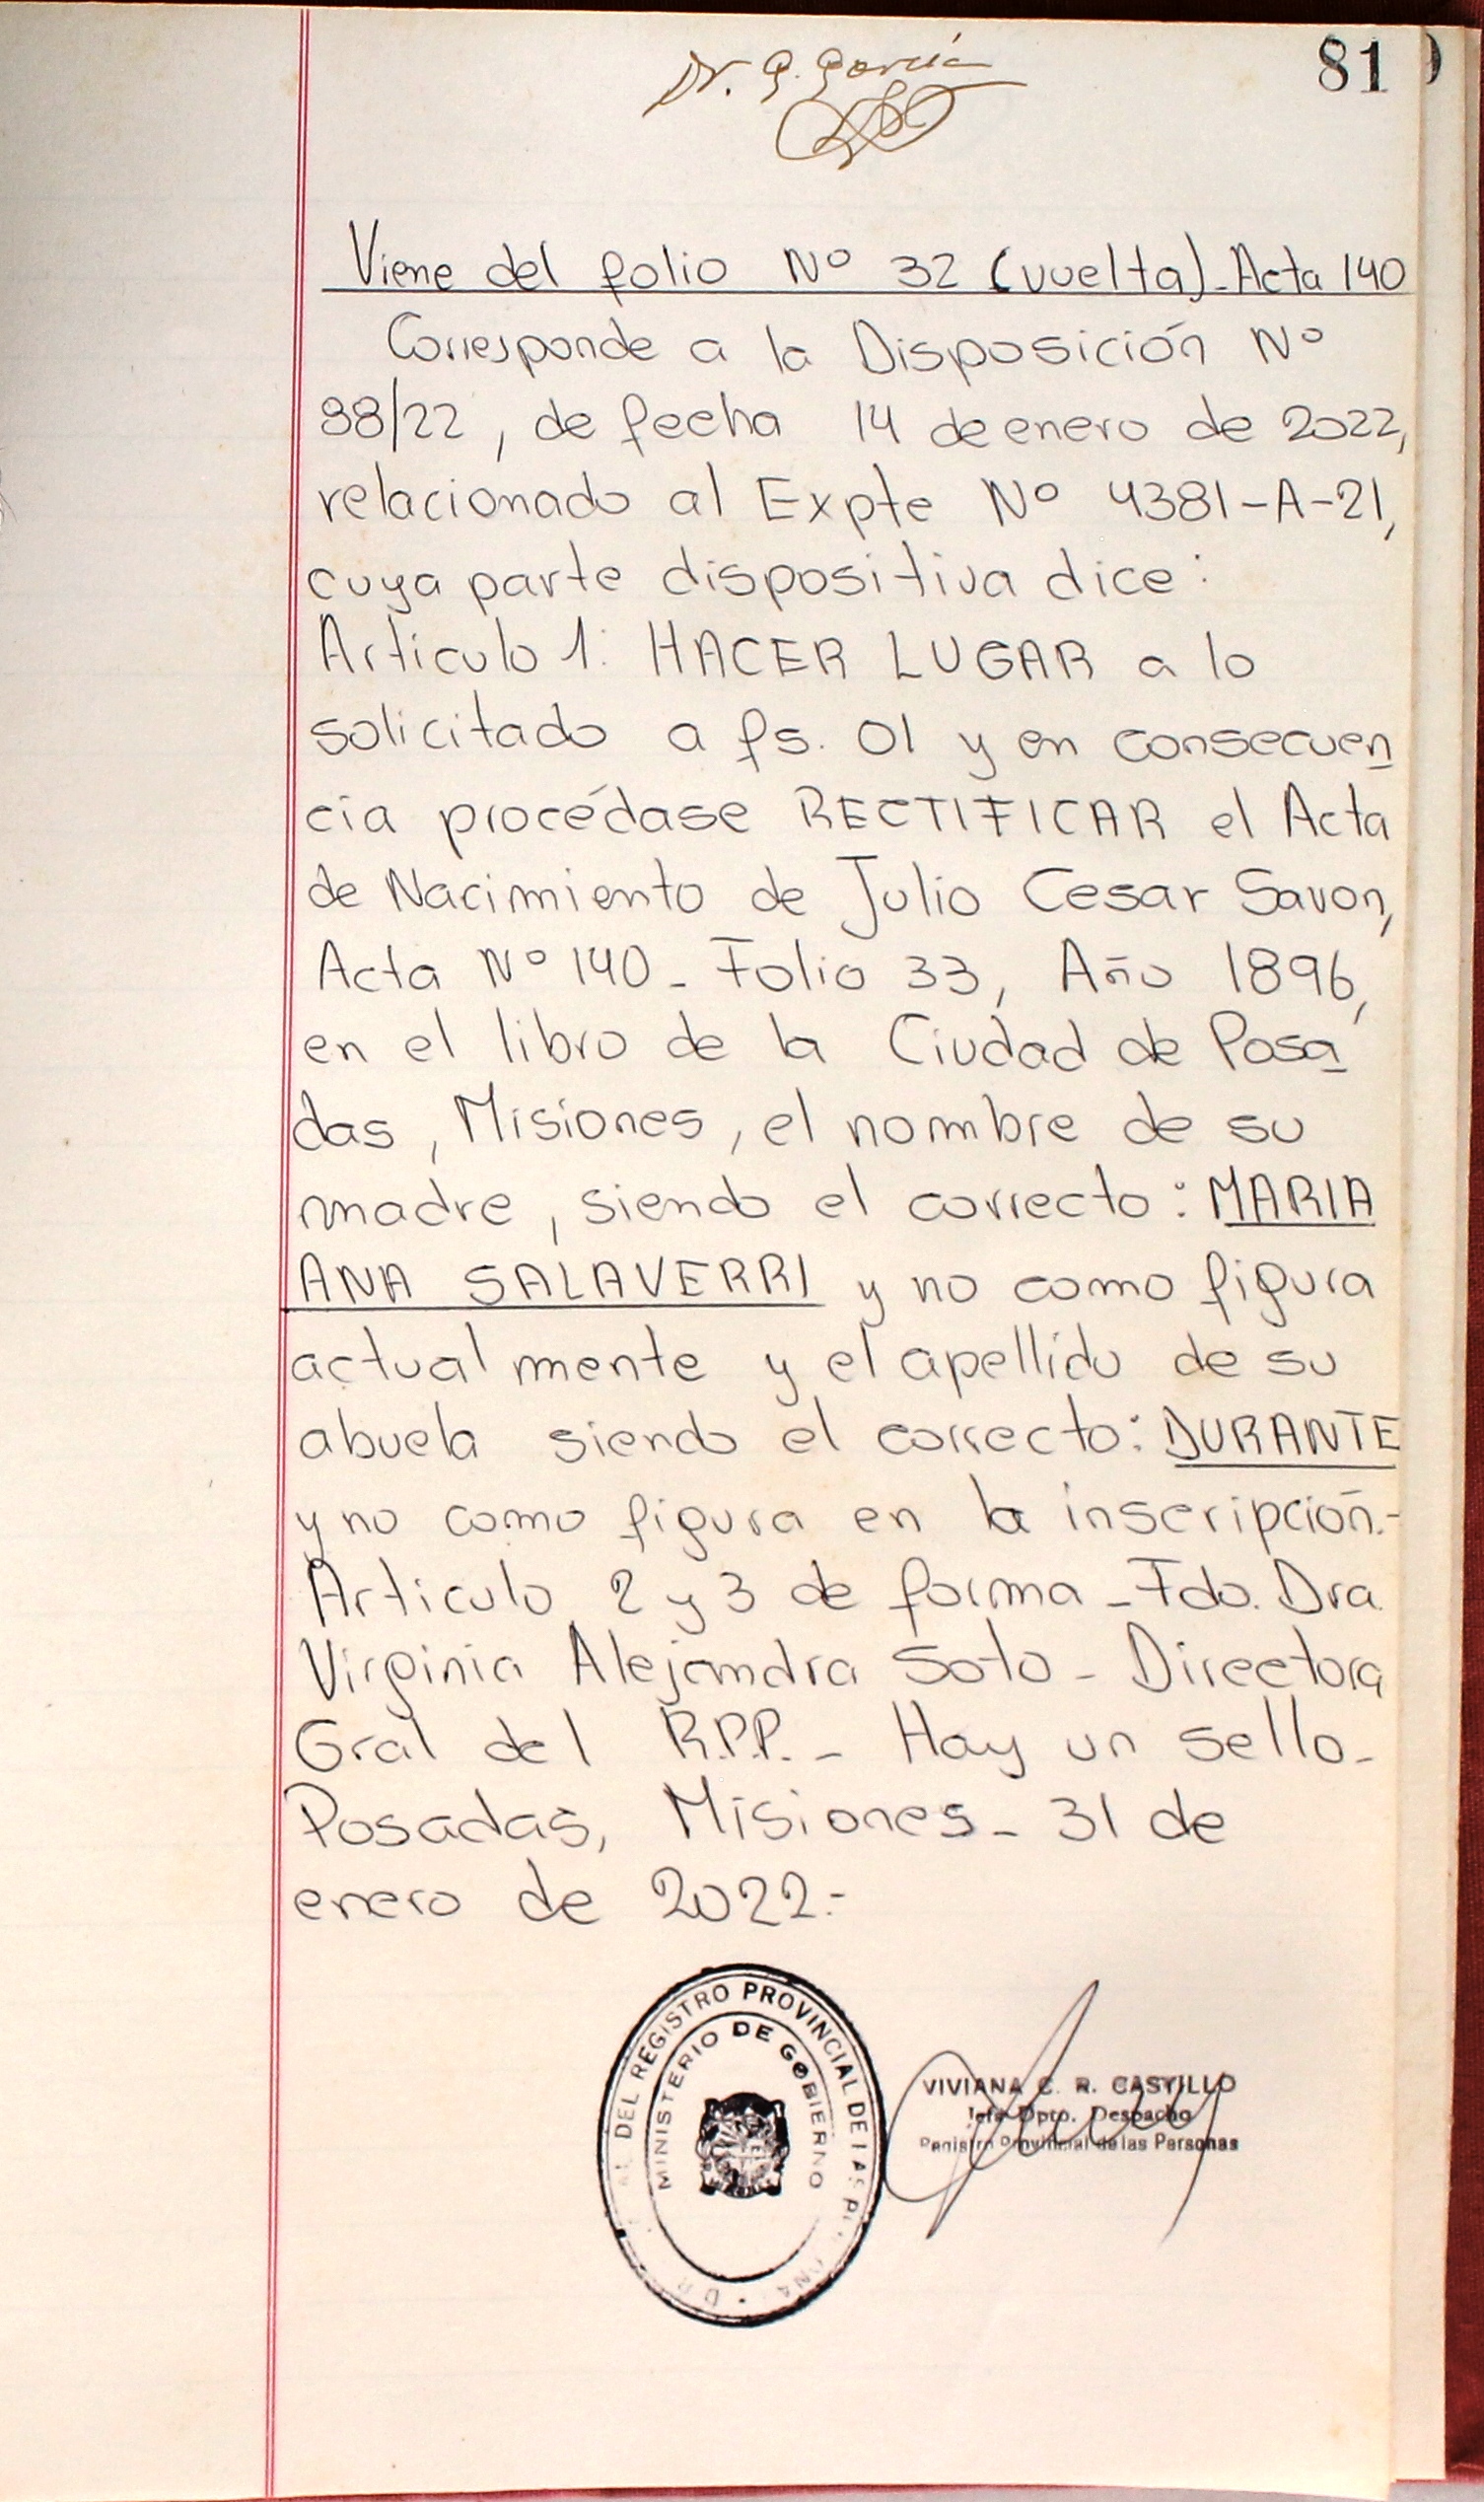 81
Dr. G. García
Viene del folio Nº 32 (vuelta)-Acta 140
Corresponde a la Disposición Nº
88/22, de fecha 14 de enero de 2022,
relacionado al Expte Nº 4381-A-21,
cuya parte dispositiva dice:
Articulo 1: HACER LUGAR a lo
solicitado a fs. 01 y en consecuen
cia procédase RECTIFICAR el Acta
de Nacimiento de Julio Cesar Savon,
Acta Nº 140 - Folio 33, Año 1896,
en el libro de la Ciudad de Posa
das, Misiones, el nombre de su
madre, siendo el correcto: MARIA
ANA SALAVERRI y no como figura
actualmente y el apellido de su
abuela siendo el correcto: DURANTE
y no como figura en la inscripción.-
Articulo 2 y 3 de forma - Fdo. Dra.
Virginia Alejandra Soto - Directora
Gral del R.P.P. - Hay un sello-
Posadas, Misiones - 31 de
enero de 2022.-
DEL REGISTRO PROVINCIAL DE LAS
MINISTERIO DE GOBIERNO
VIVIANA C. R. CASTILLO
Jefe Dpto. Despacho
Registro Provincial de las Personas